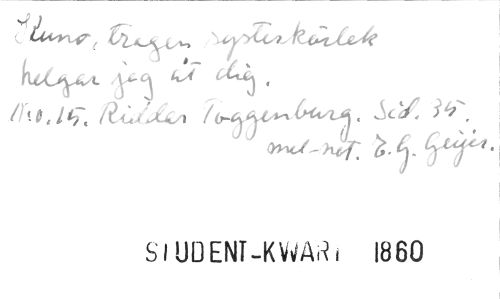 Kuno, trogen systerkärlek
helgar jag åt dig.
No. 15. Riddar Toggenburg. Sid. 35.
mel-not. E.G. Geijer.
STUDENT-KWART 1860